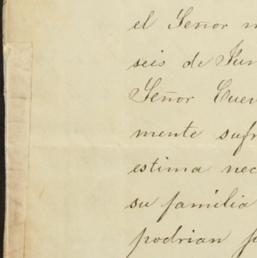 el Señor
seis de Jun
Señor Cuer
mente sufr
estima nec
su familia
podrian p